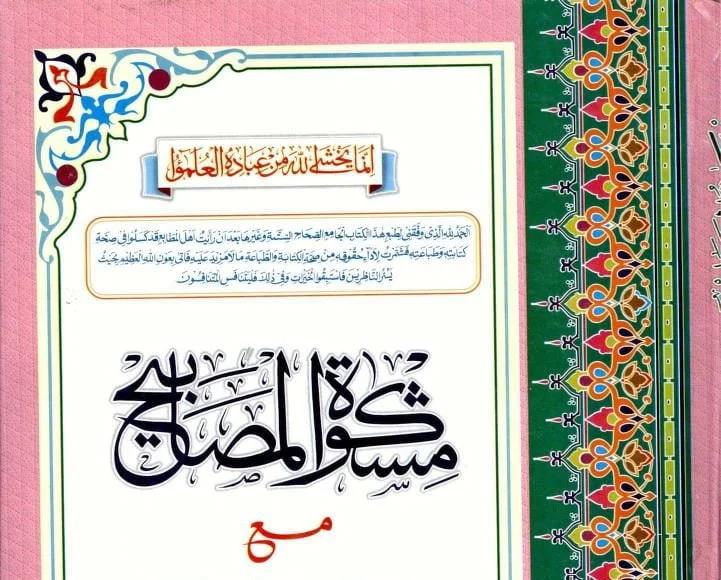 إنما يخشى الله من عباده العلمؤا
الحمد لله الذي وفقني لطبع هذا الكتاب الجامع الصحاح الستة وغيرها بعد ان رأيت اهل المطابع قد كسلوا في صحة
كتابته وطباعته فشمرت لاداء حقوقه من صحة الكتابة والطباعة ما لا مزيد عليه فاتى بعون الله العظيم بحيث
يسر الناظرين فاستبقوا الخيرات وفي ذلك فليتنافس المتنافسون
مشكوة المصابيح
مع